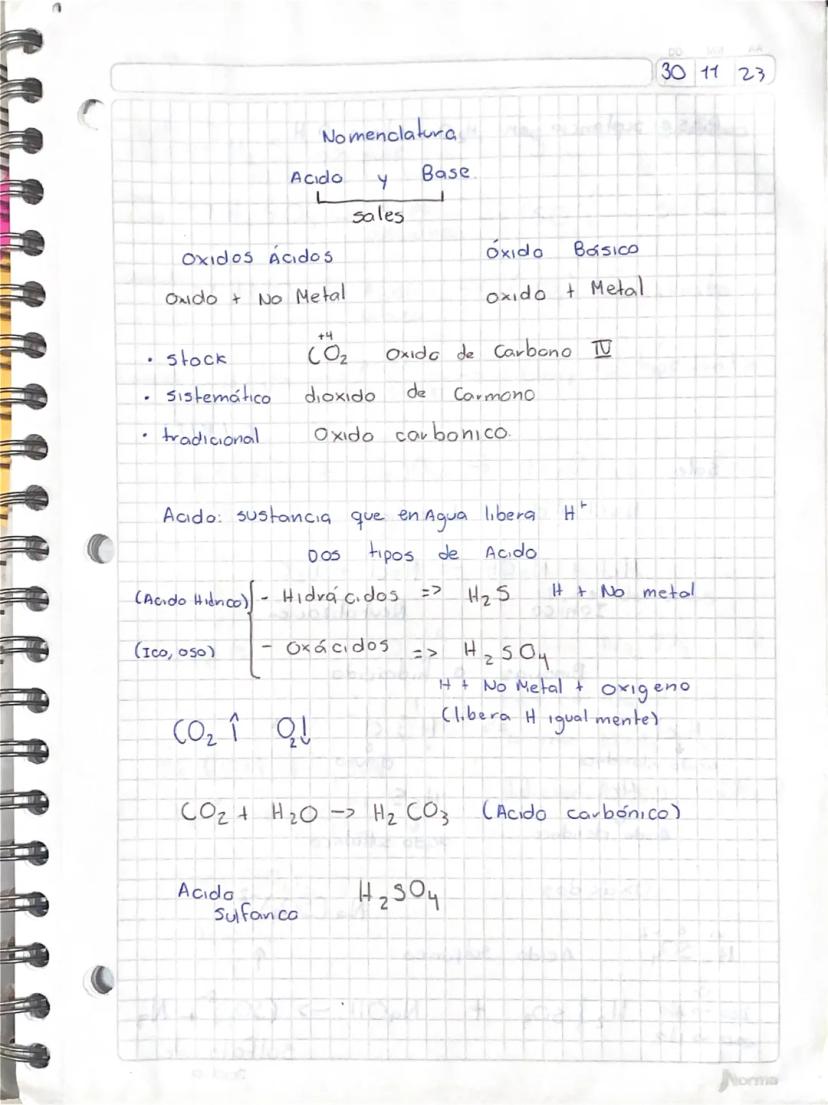 DD MM AA
30 11 23
Nomenclatura
Acido y Base.
sales
Oxidos Ácidos
Óxido Básico
Oxido + No Metal
oxido + Metal
• stock +4 CO₂ Oxido de Carbono IV
• sistemático dioxido de Carmono
• tradicional Oxido carbonico.
Acido: sustancia que en Agua libera H⁺
Dos tipos de Acido
(Acido Hidrico) - Hidrácidos => H₂S H + No metal
(Ico, oso) - Oxácidos => H₂SO₄
H + No Metal + oxigeno
(libera H igualmente)
CO₂ ↑ O₂↓
CO₂ + H₂O -> H₂CO₃ (Acido carbónico)
Acido H₂SO₄
Sulfarico
Norma